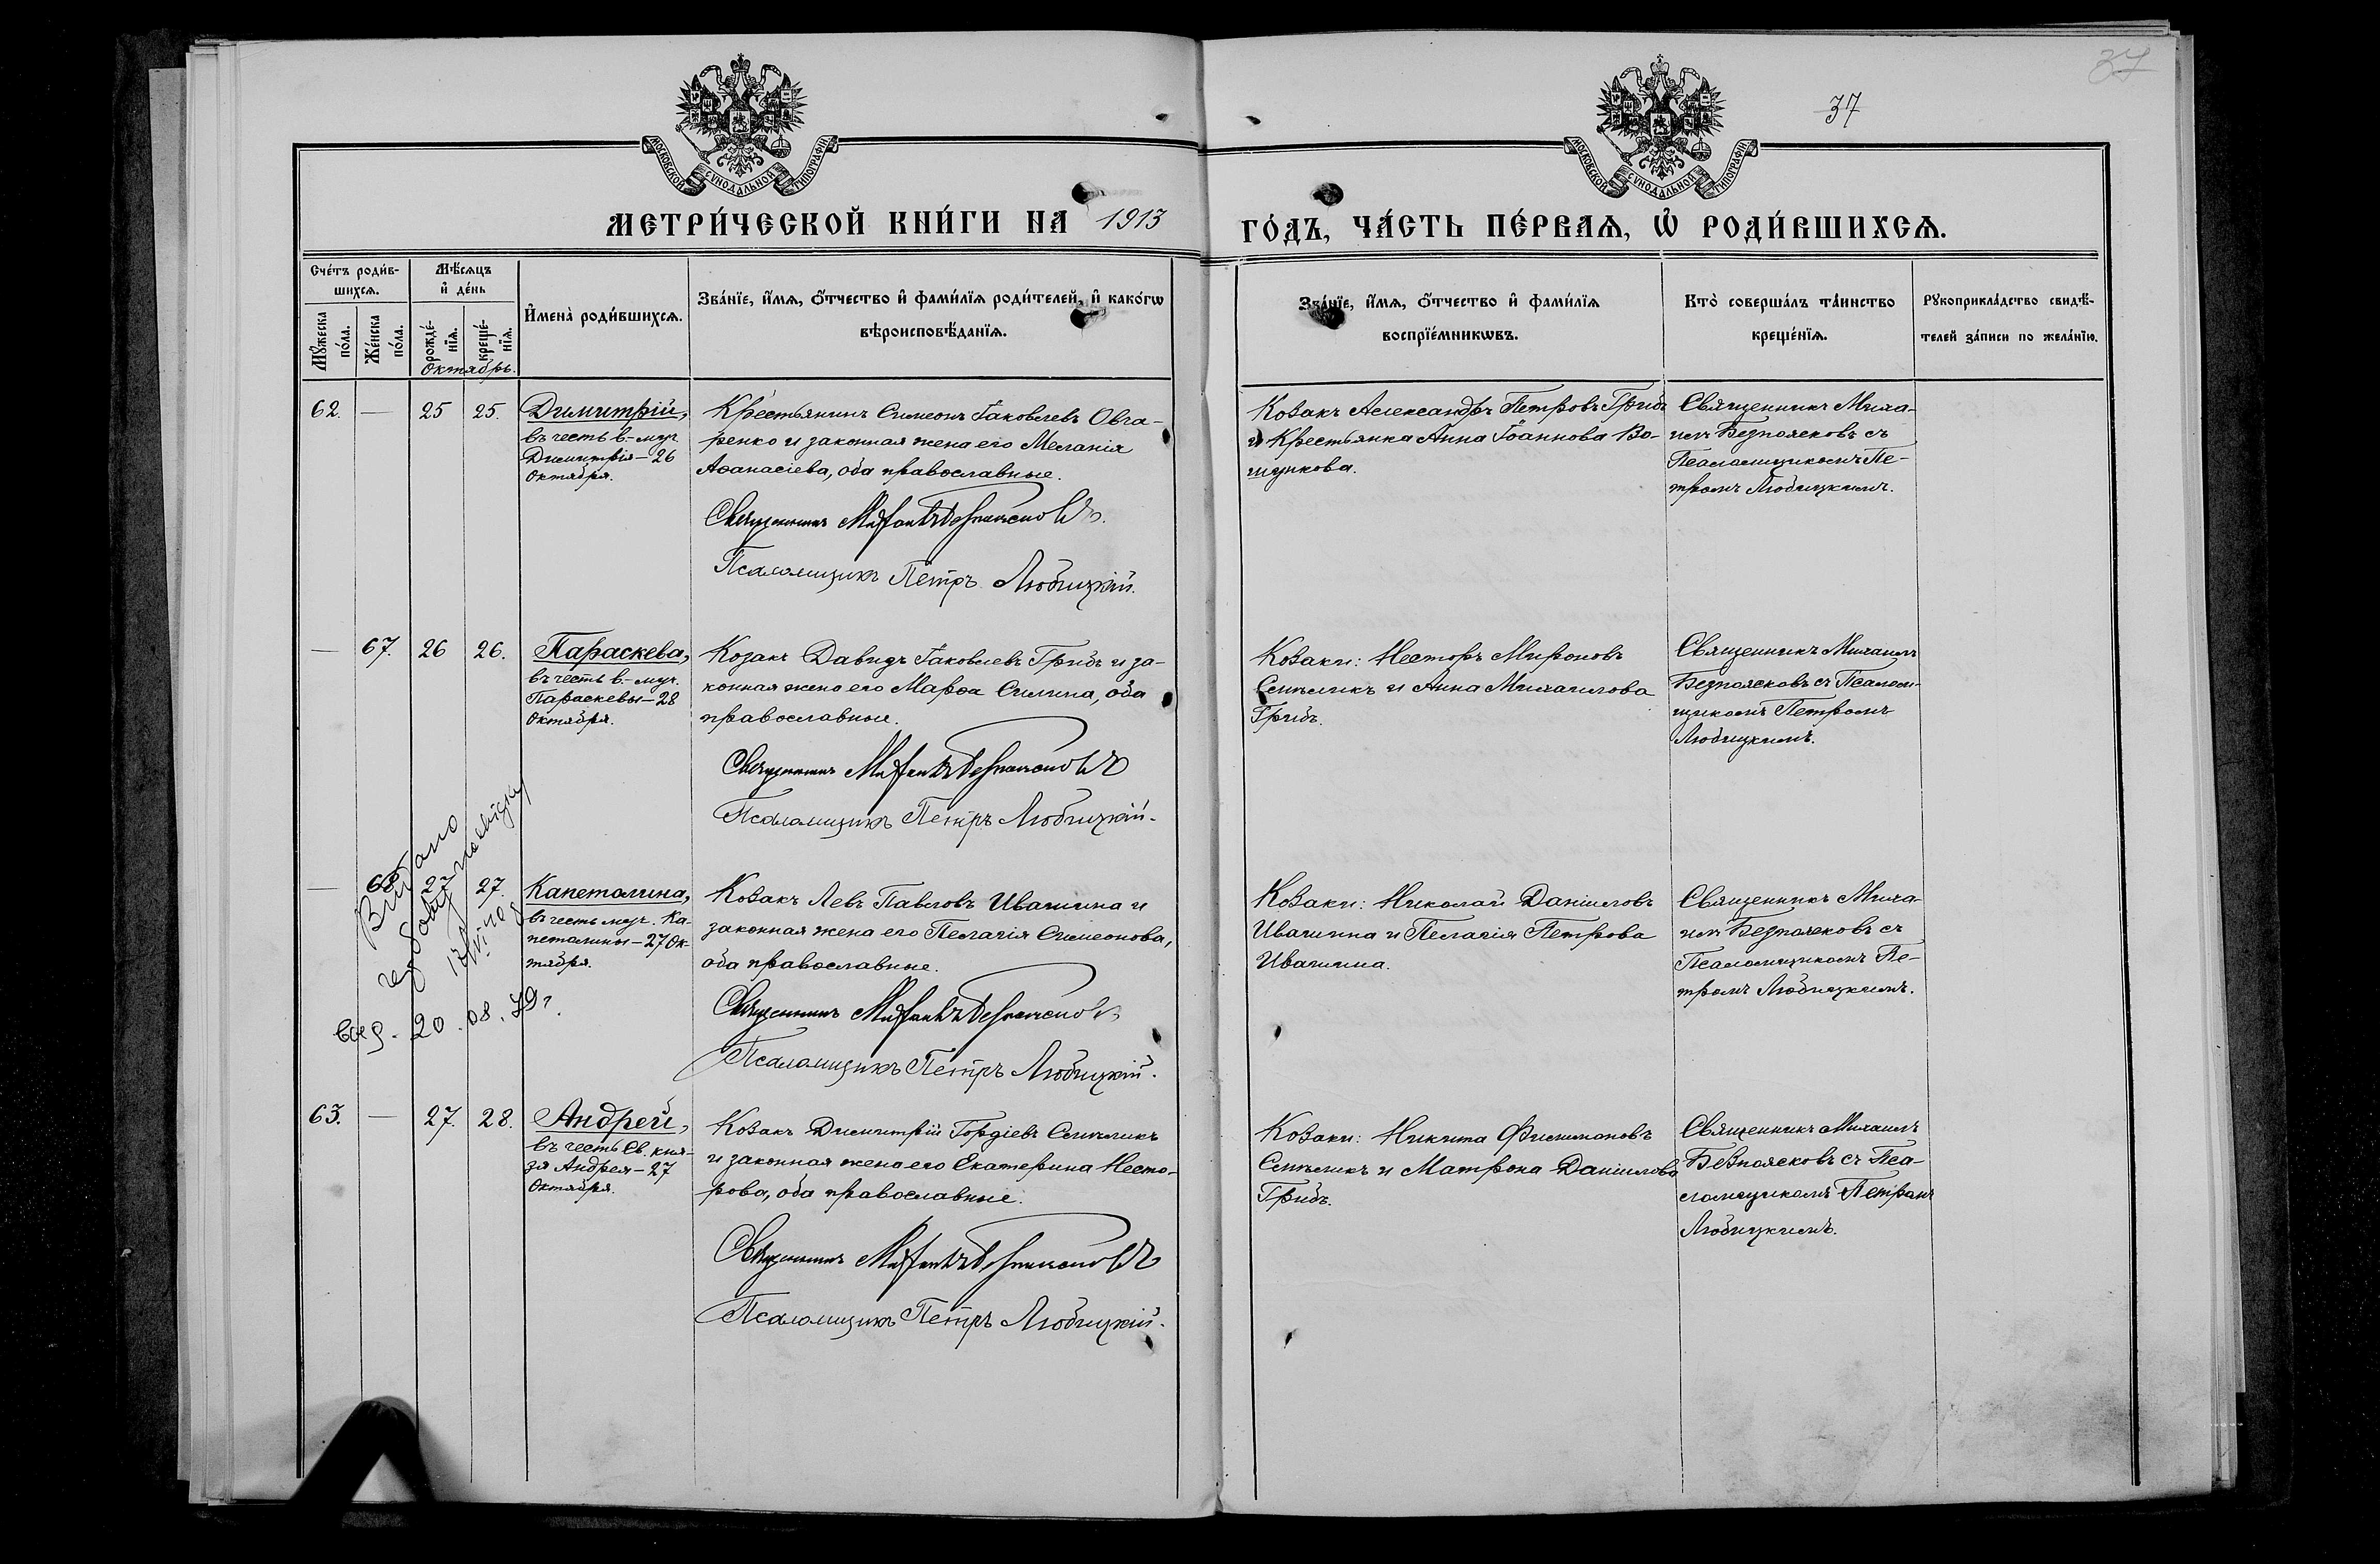 37
37
МОСКОВСКОЙ СѴНОДАЛЬНОЙ ТИПОГРАФІИ.
МОСКОВСКОЙ СѴНОДАЛЬНОЙ ТИПОГРАФІИ.
МЕТРИ́ЧЕСКОЙ КНИ́ГИ НА 1913
ГО́ДЪ, ЧА́СТЬ ПЕ́РВАѦ, Ѡ РОДИ́ВШИХСѦ.
Сче́тъ роди́в-
шихсѧ.
Мѣ́сѧцъ
и҆ де́нь
Мꙋ́жеска
по́ла.
Же́нска
по́ла.
рожде́-
нїѧ.
креще́-
нїѧ.
Октябрь.
И҆мена̀ роди́вшихсѧ.
Зва́нїе, и҆́мѧ, ѻ҆́тчество и҆ фами́лїѧ роди́телей, и҆ како́гѡ
вѣроисповѣ́данїѧ.
Зва́нїе, и҆́мѧ, ѻ҆́тчество и҆ фами́лїѧ
воспрїе́мникѡвъ.
Кто̀ соверша́лъ та́инство
креще́нїѧ.
Рꙋкоприкла́дство свидѣ́-
телей за́писи по жела́нїю.
62. — 25 25.
Димитрій,
въ честь в.-муч.
Димитрія — 26
Октября.
Крестьянинъ Симеонъ Іаковлевъ Овча-
ренко и законная жена его Меланія
Аѳанасіева, оба православные.
Священникъ Михаилъ Безпоясковъ.
Псаломщикъ Петръ Любицкій.
Козакъ Александръ Петровъ Грибъ
и Крестьянка Анна Іоаннова Во-
щикова.
Священникъ Миха-
илъ Безпоясковъ съ
Псаломщикомъ Пе-
тромъ Любицкимъ.
— 67. 26 26.
Параскева,
въ честь в.-муч.
Параскевы — 28
Октября.
Козакъ Давидъ Іаковлевъ Грибъ и за-
конная жена его Марѳа Силина, оба
православные.
Священникъ Михаилъ Безпоясковъ
Псаломщикъ Петръ Любицкій.
Козаки: Несторъ Мироновъ
и Анна Михаилова
Грибъ.
Священникъ Михаилъ
Безпоясковъ съ Псалом-
щикомъ Петромъ
Любицкимъ.
— 68. 27 27.
Видано
20.08.
Капетолина,
въ честь муч. Ка-
петолины — 27 Ок-
тября.
Козакъ Левъ Павловъ Ивачина и
законная жена его Пелагія Симеонова,
оба православные.
Священникъ Михаилъ Безпоясковъ
Псаломщикъ Петръ Любицкій.
Козаки: Николай Даніиловъ
Ивачина и Пелагія Петрова
Ивачина.
Священникъ Миха-
илъ Безпоясковъ съ
Псаломщикомъ Пе-
тромъ Любицкимъ.
63. — 27. 28.
Андрей,
въ честь Св. кня-
зя Андрея — 27
Октября.
Козакъ Димитрій Гордіевъ
и законная жена его Екатерина Несто-
рова, оба православные.
Священникъ Михаилъ Безпоясковъ
Псаломщикъ Петръ Любицкій.
Козаки: Никита Филимоновъ
и Матрона Даніилова
Грибъ.
Священникъ Михаилъ
Безпоясковъ съ Пса-
ломщикомъ Петромъ
Любицкимъ.